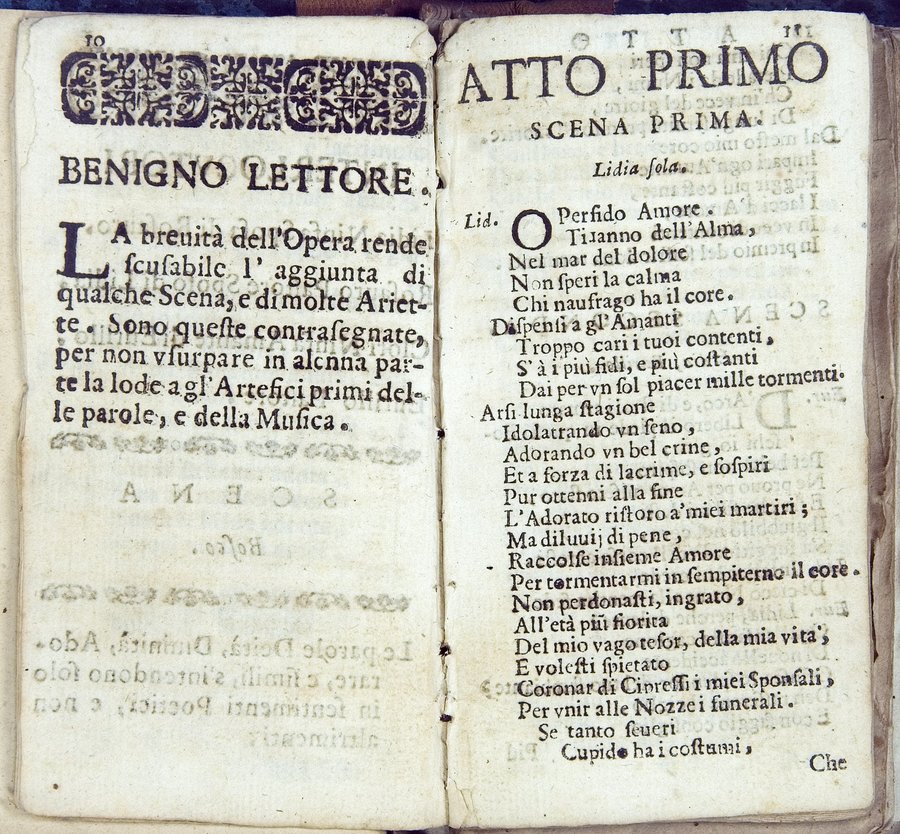 10
BENIGNO LETTORE.
LA breuità dell'Opera rende
ſcuſabile l' aggiunta di
qualche Scena, e di molte Ariet-
te. Sono queſte contraſegnate,
per non vſurpare in alcnna par-
te la lode a gl'Artefici primi del-
le parole, e della Muſica.
SCENA
Boſco.
Le parole Deità, Diuinità, Ado-
rare, e ſimili, s'intendono ſolo
in ſentimenti Poetici, e non
altrimenti.
11
ATTO PRIMO
SCENA PRIMA.
Lidia ſola.
Lid. O Perfido Amore.
Tiranno dell'Alma,
Nel mar del dolore
Non ſperi la calma
Chi naufrago ha il core.
Diſpenſi a gl'Amanti
Troppo cari i tuoi contenti,
S'à i più fidi, e più coſtanti
Dai per vn ſol piacer mille tormenti.
Arſi lunga ſtagione
Idolatrando vn ſeno,
Adorando vn bel crine,
Et a forza di lacrime, e ſoſpiri
Pur ottenni alla fine
L'Adorato riſtoro a'miei martiri;
Ma diluuij di pene,
Raccolſe inſieme Amore
Per tormentarmi in ſempiterno il core.
Non perdonaſti, ingrato,
All'età più fiorita
Del mio vago teſor, della mia vita,
E voleſti ſpietato
Coronar di Cipreſſi i miei Sponſali,
Per vnir alle Nozze i funerali.
Se tanto ſeueri
Cupido ha i coſtumi,
Che